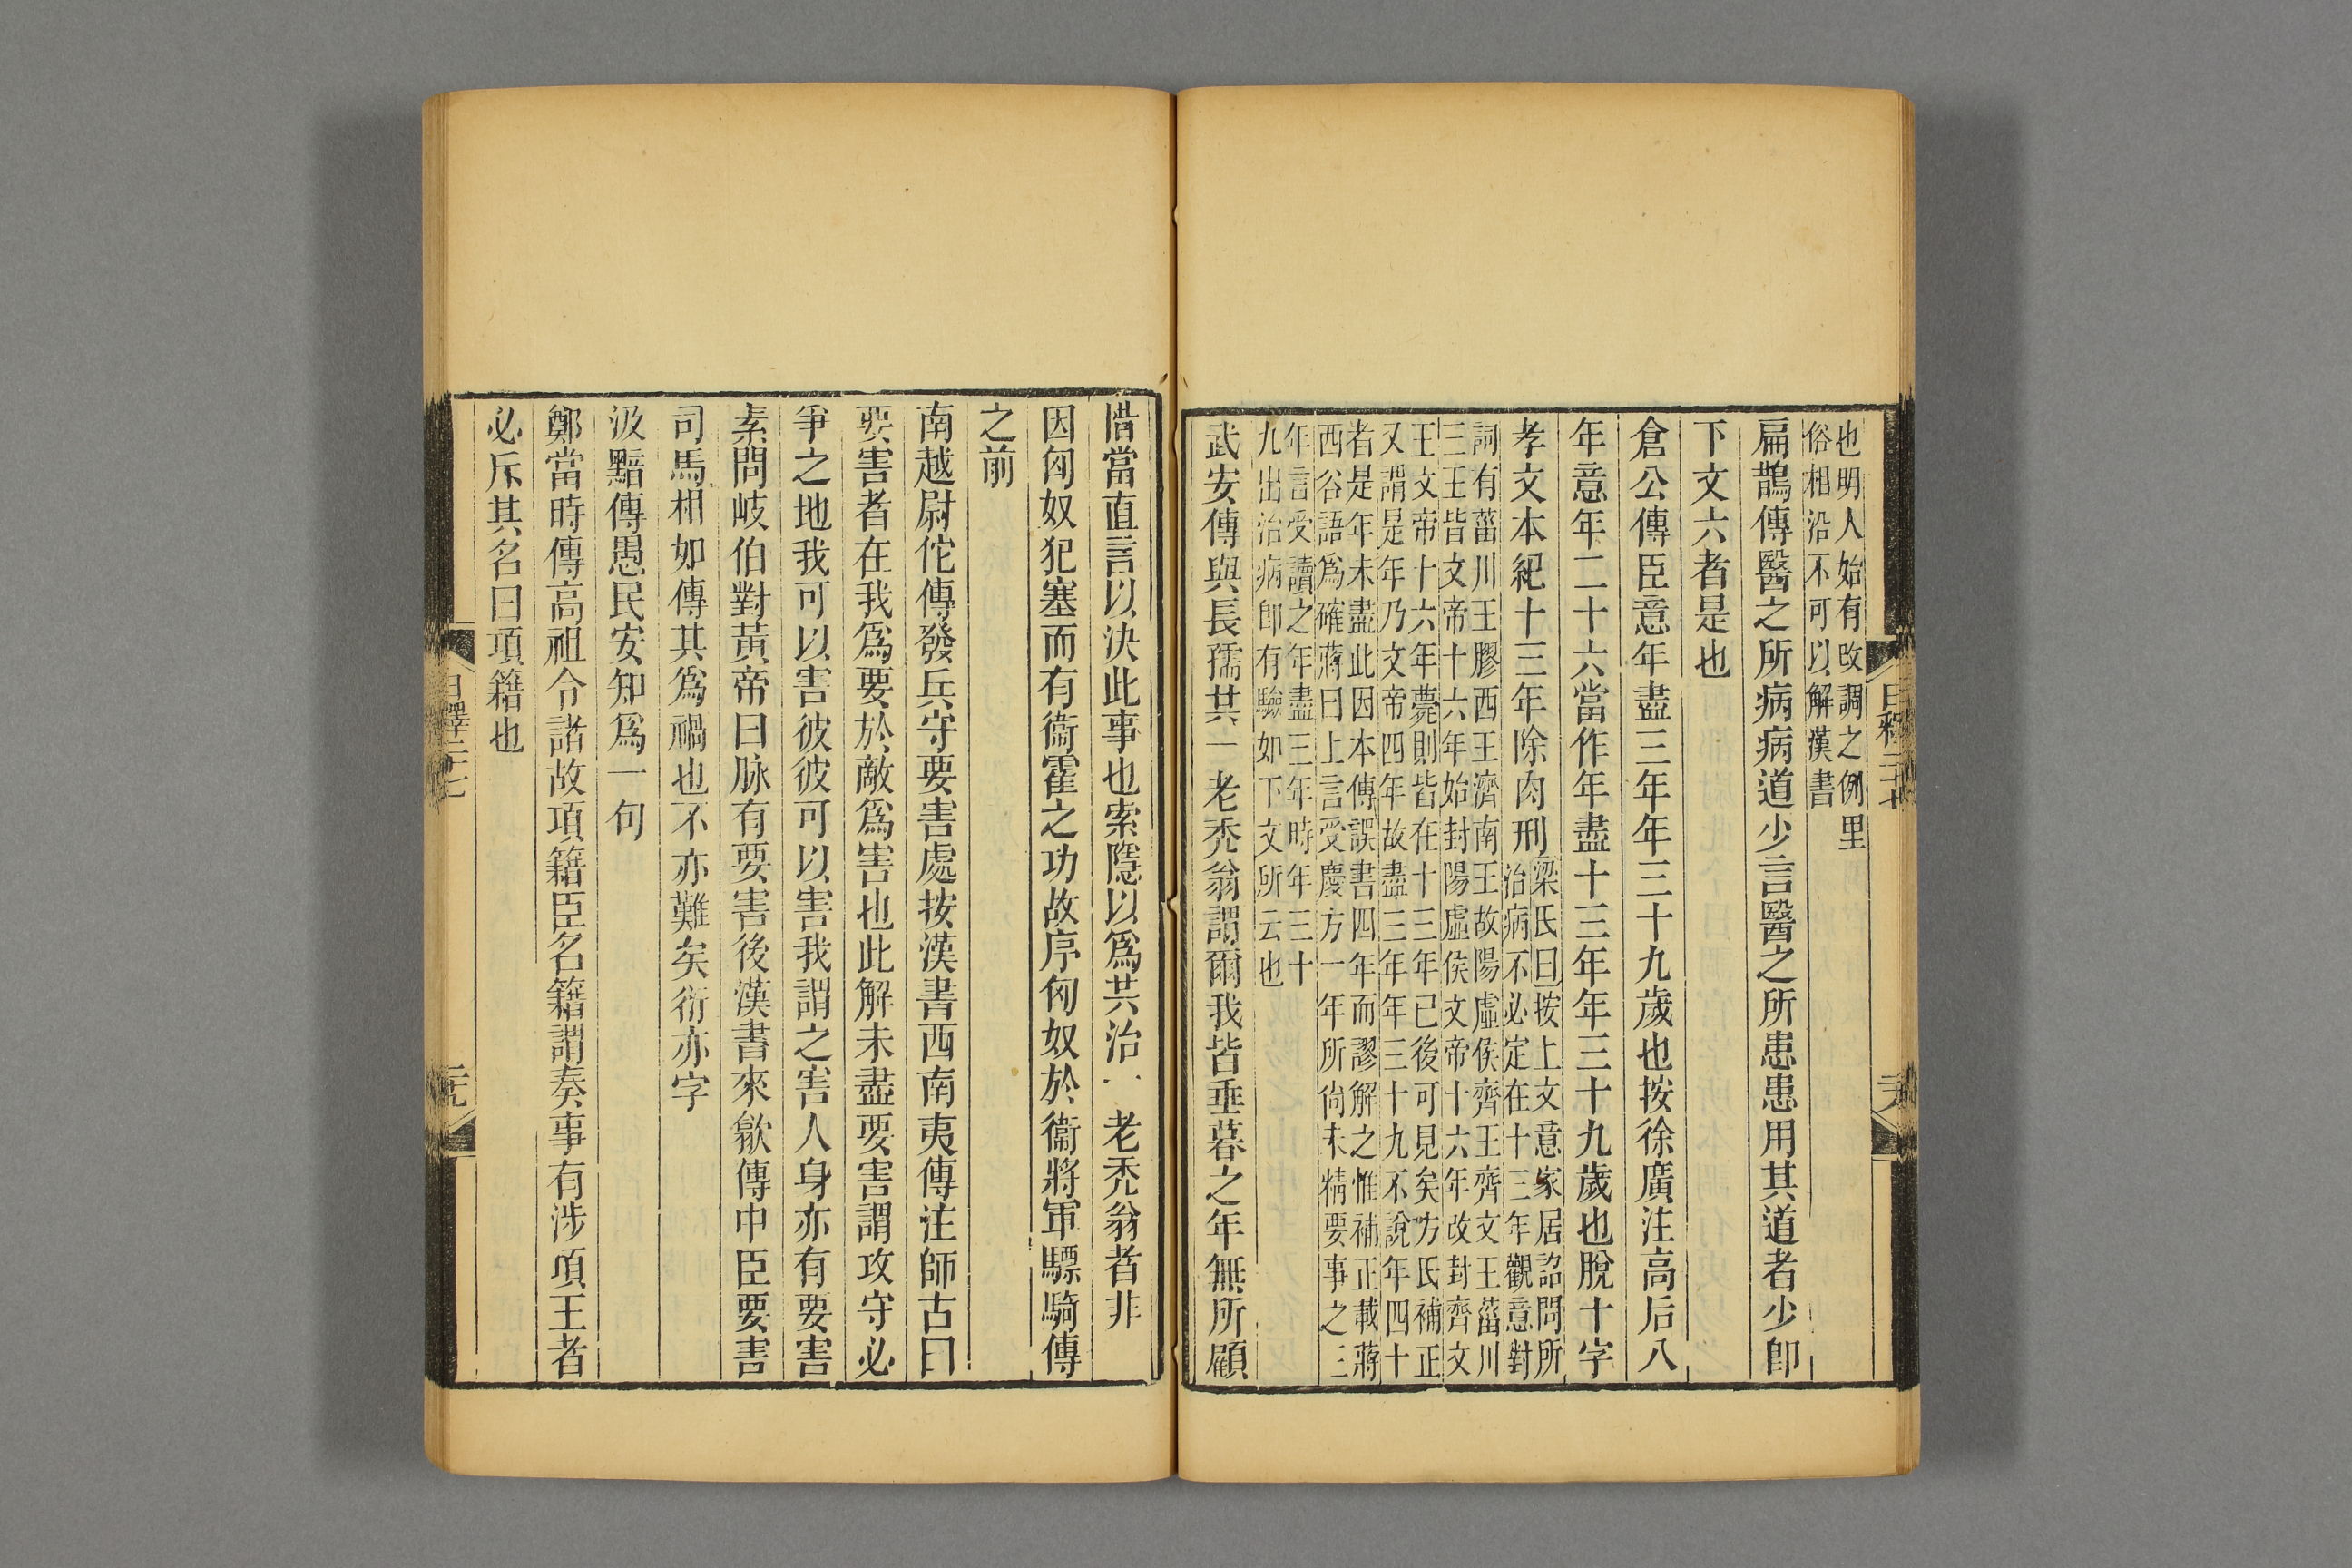 也明人始有改調之例里
俗相沿不可以解漢書
扁鵲傳醫之所病病道少言醫之所患患用其道者少卽
下文六者是也
倉公傳臣意年盡三年年三十九歲也按徐廣注高后八
年意年二十六當作年盡十三年年三十九歲也脫十字
孝文本紀十三年除肉刑
梁氏曰按上文意家居詔問所
治病不必定在十三年觀意對
詞有菑川王膠西王濟南王故陽虛侯齊王齊文王菑川
三王皆文帝十六年始封陽虛侯文帝十六年改封齊文
王文帝十六年薨則皆在十三年已後可見矣方氏補正
又謂是年乃文帝四年故盡三年年三十九不說年四十
者是年未盡此因本傳誤書四年而謬解之惟補正載蔣
西谷語爲確蔣曰上言受慶方一年所尚未精要事之三
年言受讀之年盡三年時年三十
九出治病卽有驗如下文所云也
武安傳與長孺共一老禿翁謂爾我皆垂暮之年無所顧
惜當直言以決此事也索隱以爲共治一老禿翁者非
因匈奴犯塞而有衞霍之功故序匈奴於衞將軍驃騎傳
之前
南越尉佗傳發兵守要害處按漢書西南夷傳注師古曰
要害者在我爲要於敵爲害也此解未盡要害謂攻守必
爭之地我可以害彼彼可以害我謂之害人身亦有要害
素問岐伯對黃帝曰脉有要害後漢書來歙傳中臣要害
司馬相如傳其爲禍也不亦難矣衍亦字
汲黯傳愚民安知爲一句
鄭當時傳高祖令諸故項籍臣名籍謂奏事有涉項王者
必斥其名曰項籍也
日釋二十七